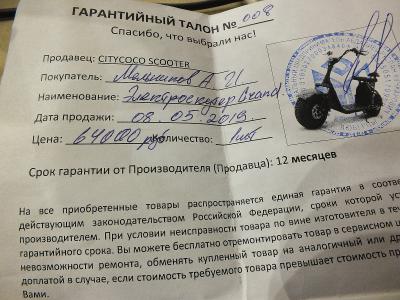 ГАРАНТИЙНЫЙ ТАЛОН № 008
Спасибо, что выбрали нас!
Продавец: CITYCOCO SCOOTER
Покупатель: Мельников А. И.
Наименование: Электроскутер Grand
Дата продажи: 08.05.2019
Цена: 64000 руб Количество: 1 шт
Срок гарантии от Производителя (Продавца): 12 месяцев
На все приобретенные товары распространяется единая гарантия в соотве
действующим законодательством Российской Федерации, сроки которой ус
производителем. При условии неисправности товара по вине изготовителя в теч
гарантийного срока. Вы можете бесплатно отремонтировать товар в сервисном ц
невозможности ремонта, обменять купленный товар на аналогичный или др
доплатой в случае, если стоимость требуемого товара превышает стоимость пр
Вами.